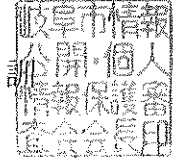 岐阜市情報
公開・個人
情報保護審
査会会長印